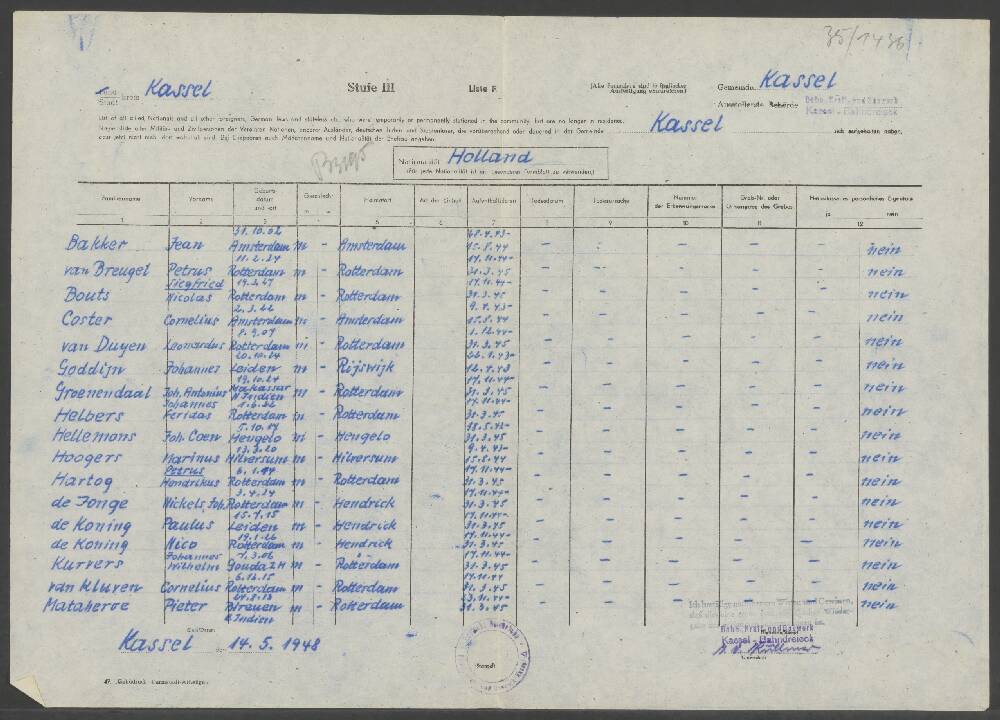 35/1436
Stadt kreis Kassel
Stufe III
Liste F
Gemeinde Kassel
Ausstellende Behörde Bahn. Kraft. und Gaswerk
Kassel - Bahndreieck
List of all allied Nationals and all other foreigners, German Jews and stateless etc. who were temporarily or permanently stationed in the community, but are no longer in residence.
Kassel sich aufgehalten haben,
Nationalität Holland
(Für jede Nationalität ist ein besonderes Formblatt zu verwenden)
Familienname Vorname Geburts-datum und -ort Geschlecht m w Heimatort Art der Einlage Aufenthaltsdauer Todesdatum Todesursache Nummer der Erkennungsmarke Grab-Nr. oder persönliches Eigentum ja nein
1 2 3 4 5 6 7 8 9 10 11 12
31.10.02
Bakker Jean Amsterdam m - Amsterdam 15.8.44 - - - - - nein
11.2.24 17.11.44-
van Breugel Petrus Rotterdam m - Rotterdam 31.3.45 - - - - - nein
Siegfried 19.3.27 17.11.44-
Bouts Nicolas Rotterdam m - Rotterdam 31.3.45 - - - - - nein
2.3.22 9.4.43-
Coster Cornelius Amsterdam m - Amsterdam 15.8.44 - - - - - nein
8.9.07 1.12.44-
van Duyen Leonardus Rotterdam m - Rotterdam 31.3.45 - - - - - nein
20.10.24 22.1.43-
Goddijn Johannes Leiden m - Rijswijk 12.4.43 - - - - - nein
19.10.24 17.11.44-
Groenendaal Joh. Antonius Makassar N Indien m - Rotterdam 31.3.45 - - - - - nein
Johannes 1.6.22 17.11.44-
Helbers Feridas Rotterdam m - Rotterdam 31.3.45 - - - - - nein
5.10.17 18.5.42-
Hellemans Joh. Coen Hengelo m - Hengelo 31.3.45 - - - - - nein
13.3.20 9.4.43-
Hoogers Marinus Hilversum m - Hilversum 15.8.44 - - - - - nein
Petrus 6.1.14 17.11.44-
Hartog Hendrikus Rotterdam m - Rotterdam 31.3.45 - - - - - nein
3.4.24 17.11.44-
de Jonge Nickels, Joh. Rotterdam m - Hendrick 31.3.45 - - - - - nein
15.7.15 17.11.44-
de Koning Paulus Leiden m - Hendrick 31.3.45 - - - - - nein
19.1.26 17.11.44-
de Koning Nico Rotterdam m - Hendrick 31.3.45 - - - - - nein
Johannes 7.3.06 17.11.44-
Kurvers Wilhelm Gouda ZH m - Rotterdam 31.3.45 - - - - - nein
6.12.15 17.11.44
van Kluren Cornelius Rotterdam m - Rotterdam 31.3.45 - - - - - nein
23.11.44-
Mataherre Pieter Bireuen m - Rotterdam 31.3.45 - - - - - nein
N Indien
Kassel, 14.5.1948
Bahn. Kraft. und Gaswerk
Kassel - Bahndreieck